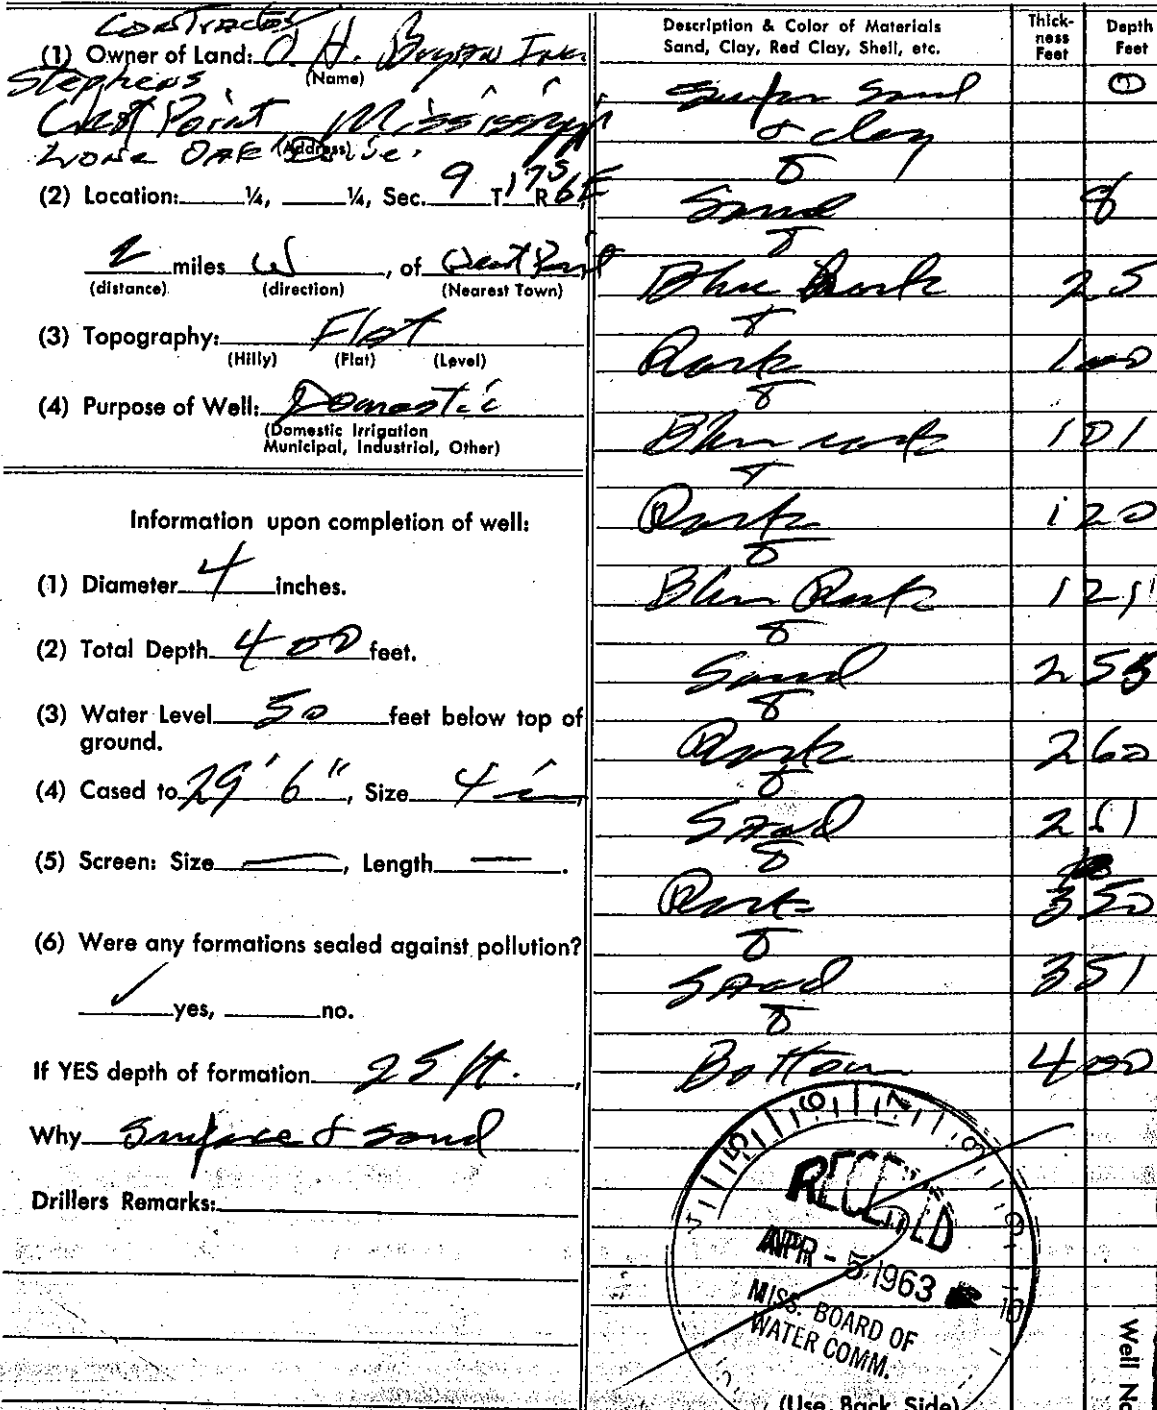 Contractor
(1) Owner of Land: O. H. Bryan Inc
(Name)
Stephens
West Point Mississippi
Lone Oak Drive.
(Address)
(2) Location: ¼, ¼, Sec. 9 T 17S R 6E
2 miles W, of West Point
(distance) (direction) (Nearest Town)
(3) Topography: Flat
(Hilly) (Flat) (Level)
(4) Purpose of Well: Domestic
(Domestic Irrigation
Municipal, Industrial, Other)
Information upon completion of well:
(1) Diameter 4 inches.
(2) Total Depth 400 feet.
(3) Water Level 50 feet below top of
ground.
(4) Cased to 29' 6", Size 4 in
(5) Screen: Size —, Length —.
(6) Were any formations sealed against pollution?
✓ yes, no.
If YES depth of formation 25 ft.,
Why Surface & sand
Drillers Remarks:
Description & Color of Materials
Sand, Clay, Red Clay, Shell, etc.
Thick-
ness
Feet
Depth
Feet
Sand 0
& clay
Sand 8
Blue Rock 25
Rock 100
Blue rock 101
Rock 120
Blue Rock 121
Sand
Rock 260
Sand 261
Rock 350
Sand 351
Bottom 400
RECEIVED
APR - 5 1963
MISS. BOARD OF
WATER COMM.
(Use Back Side)
Well No